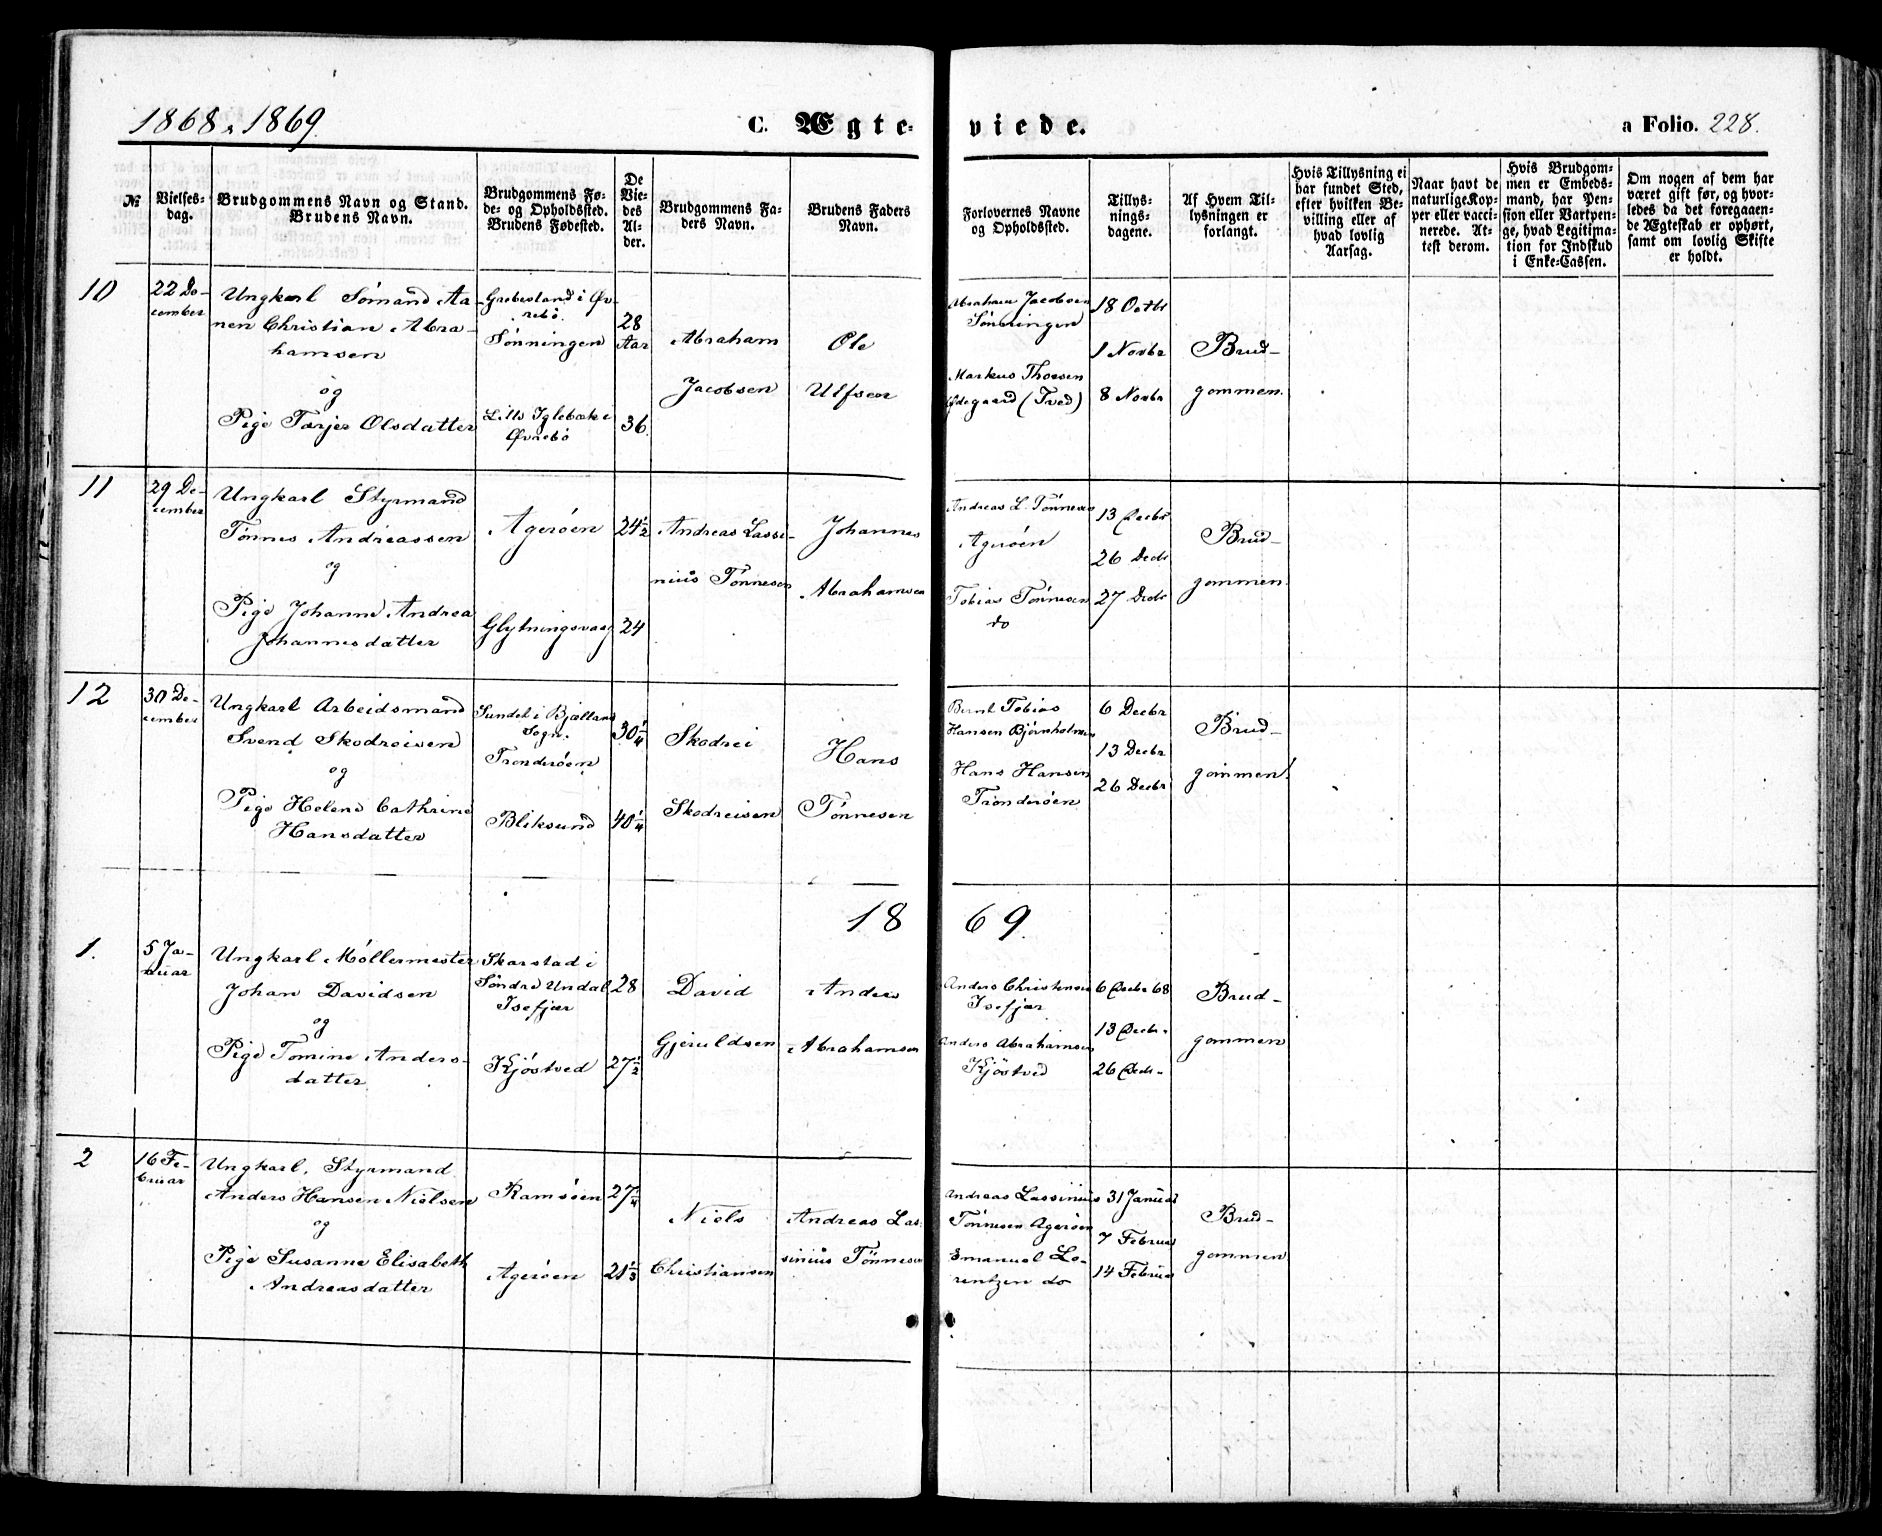 1868 . 1869.
C. Ægte-
viede.
a Folio. 228.
№
Vielses-
dag.
Brudgommens Navn og Stand.
Brudens Navn.
Brudgommens Fø-
de- og Opholdssted.
Brudens Fødested.
De
Vie-
des
Al-
der.
Brudgommens Fa-
ders Navn.
Brudens Faders
Navn.
Forlovernes Navne
og Opholdssted.
Tillys-
nings-
dagene.
Af Hvem Til-
lysningen er
forlangt.
Hvis Tillysning ei
har fundet Sted,
efter hvilken Be-
villing eller af
hvad lovlig
Aarsag.
Naar havt de
naturlige Kop-
per eller vacci-
nerede. At-
test derom.
Hvis Brudgom-
men er Embeds-
mand, har Pen-
sion eller Vartpen-
ge, hvad Legitima-
tion for Indskud
i Enke-Cassen.
Om nogen af dem har
været gift før, og hvor-
ledes da det foregaaen-
de Ægteskab er ophørt,
samt om lovlig Skifte
er holdt.
10
22 De-
cember
Ungkarl Sømand Aa-
nen Christian Abra-
hamsen
og
Pige Tarjer Olsdatter
Grobesland i Øv-
rebø.
Sønningen
Lille Iglebæk i
Øvrebø
28
Aar
36
Abraham
Jacobsen
Ole
Ulfsen
Abraham Jacobsen
Sønningen
Markus Thorsen
Ødegaard (Tved)
18 Octbr
1 Novbr
8 Novbr
Brud-
gommen.
11
29 De-
cember
Ungkarl Styrmand
Tønnes Andreassen
og
Pige Johanne Andrea
Johannesdatter
Agerøen
Glytningsvaag
24½
24
Andreas Lassi-
nius Tønnesen
Johannes
Abrahamsen
Andreas L. Tønnesen
Agerøen
Tobias Tønnesen
do
13 Decbr
26 Decbr
27 Decbr
Brud-
gommen.
12
30 De-
cember
Ungkarl Arbeidsmand
Svend Skodreisen
og
Pige Helene Cathrine
Hansdatter
Sundet i Bjælland
Sogn.
Trønderøen
Bliksund
30¼
40¼
Skodrei
Skodreisen
Hans
Tønnesen
Bernt Tobias
Hansen Bjørnholmen
Hans Hansen
Trønderøen
6 Decbr
13 Decbr
26 Decbr
Brud-
gommen.
18 69.
1.
5 Ja-
nuar
Ungkarl Møllermester
Johan Davidsen
og
Pige Tomine Anders-
datter
Skarstad i
Søndre Undal
Isefjær
Kjøstved
28
27½
David
Gjeruldsen
Anders
Abrahamsen
Anders Christensen
Isefjær
Anders Abrahamsen
Kjöstved
6 Decbr 68
13 Decbr.
26 Decbr.
Brud-
gommen
2
16 Fe-
bruar
Ungkarl. Styrmand
Anders Hansen Nielsen
og
Pige Susanne Elisabeth
Andreasdatter
Ramsøen
Agerøen
27¼
21⅓
Niels
Christiansen
Andreas Las-
sinius Tønnesen
Andreas Lassinius
Tønnesen Agerøen
Emanuel Lo-
rentzen do
31 Januar
7 Februar
14 Februar
Brud-
gommen